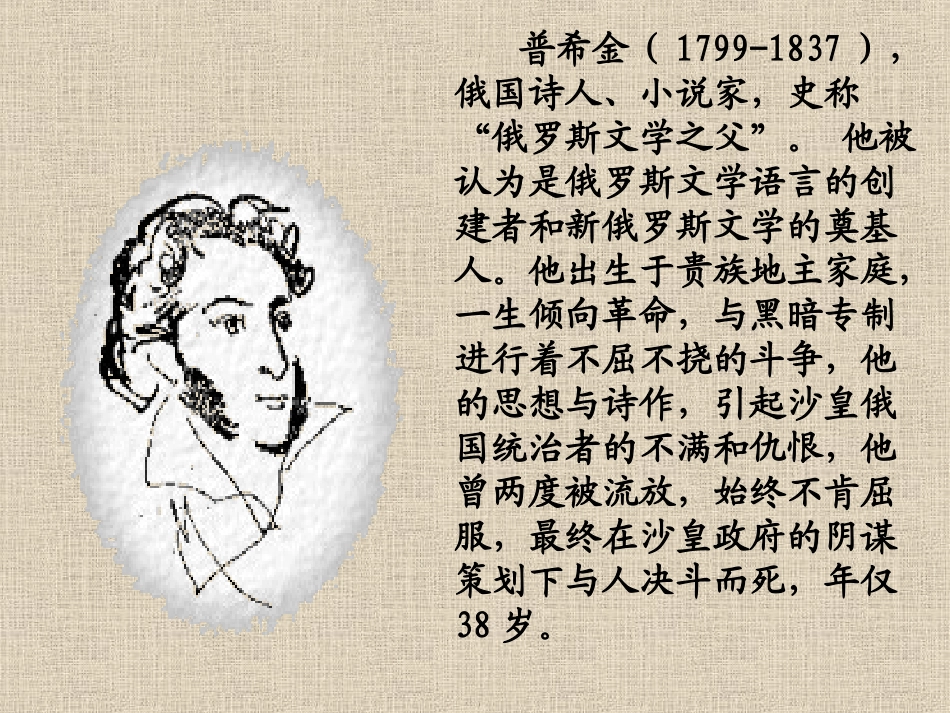 普希金（1799-1837），
俄国诗人、小说家，史称
“俄罗斯文学之父”。 他被
认为是俄罗斯文学语言的创
建者和新俄罗斯文学的奠基
人。他出生于贵族地主家庭，
一生倾向革命，与黑暗专制
进行着不屈不挠的斗争，他
的思想与诗作，引起沙皇俄
国统治者的不满和仇恨，他
曾两度被流放，始终不肯屈
服，最终在沙皇政府的阴谋
策划下与人决斗而死，年仅
38 岁。